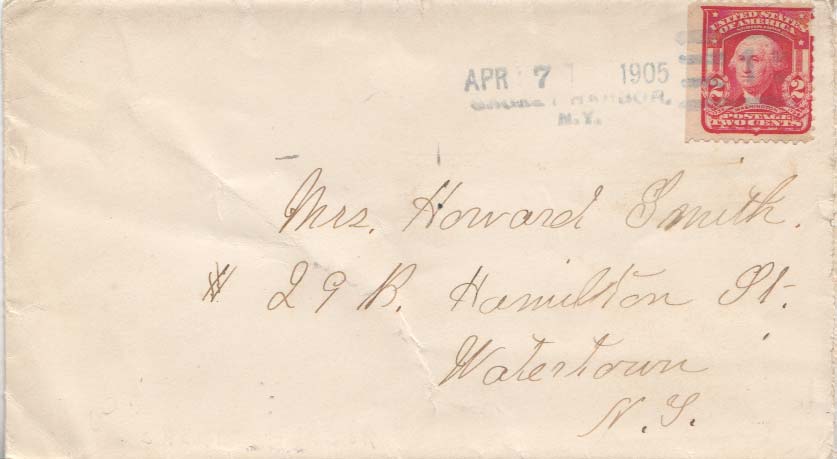 UNITED STATES
OF AMERICA
2 2
WASHINGTON
POSTAGE
TWO CENTS
APR 7 1905
HARBOR,
N.Y.
Mrs. Howard Smith.
# 29 B. Hamilton St.
Watertown
N. Y.